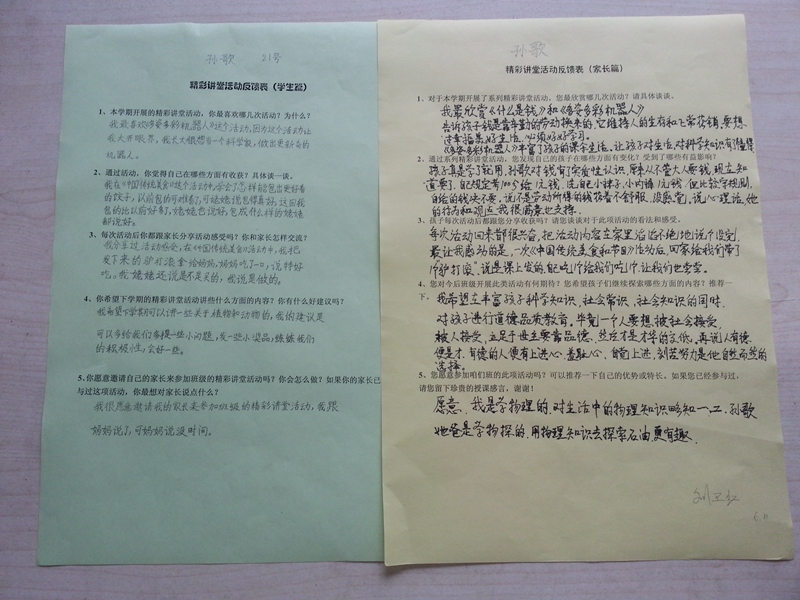 孙歌 21号
精彩讲堂活动反馈表（学生篇）
1、本学期开展的精彩讲堂活动，你最喜欢哪几次活动？为什么？
我最喜欢《多姿多彩机器人》这个活动，因为这个活动让
我大开眼界，我长大很想当一个科学家，做出更好看的
机器人。
2、通过活动，你觉得自己在哪些方面有收获？具体谈一谈。
我在《中国传统美食》这个活动中，学会了怎样能包出更好看
的饺子，以前包的可难看了，可姥姥包得真好，这回我
包的比以前好看，姥姥也说好，包成什么样的姥姥
都说好。
3、每次活动后你都跟家长分享活动感受吗？你和家长怎样交流？
我分享过活动感受，在《中国传统美食》活动中，我把
发下来的驴打滚拿给妈妈，妈妈吃了一口，说特好
吃。我姥姥还说是不是买的，我说是做的。
4、你希望下学期的精彩讲堂活动讲些什么方面的内容？你有什么好建议吗？
我希望下学期可以讲一些关于植物和动物的，我的建议是
可以多给我们多提一些小问题，发一些小奖品，练练我们
的积极性，会好一些。
5、你愿意邀请自己的家长来参加班级的精彩讲堂活动吗？你会怎么做？如果你的家长已
与过这项活动，你最想对家长说点什么？
我很愿意邀请我的家长来参加班级的精彩讲堂活动，我跟
妈妈说了，可妈妈说没时间。
孙歌
精彩讲堂活动反馈表（家长篇）
1、对于本学期开展了系列精彩讲堂活动，您最欣赏哪几次活动？请具体谈谈。
我最欣赏《什么是钱》和《多姿多彩机器人》
告诉孩子钱是靠辛勤的劳动换来的，它维持人的生存和正常花销，要想
过幸福美好生活，必须好好学习。
《多姿多彩机器人》丰富了孩子的课余生活。让孩子对生活，对科学知识有了憧憬
2、通过系列精彩讲堂活动，您发现自己的孩子在哪些方面有变化？受到了哪些有益影响？
孩子真是学了就用，孙歌对钱有了实质性认识，原来人不管大人要钱，现在知
道要了，
自给的钱决不要，说不是劳动所得的钱花着不舒服，没感觉，说心理话，她
的行为和观点，我很满意也支持。
3、孩子每次活动后都跟您分享收获吗？请您谈谈对于此项活动的看法和感受。
每次活动回来都很兴奋，把活动内容在家里滔滔不绝地说个没完，
最让我感动的是，一次《中国传统美食和节日》活动后，回家给我们带了
1个驴打滚，说是课上发的，她吃1个给我们吃1个，让我们也尝尝。
4、您对今后班级开展此类活动有何期待？您希望孩子们继续探索哪些方面的内容？推荐一
下。我希望在丰富孩子科学知识，社会常识，社会知识的同时，
对孩子进行道德品质教育。毕竟一个人要想被社会接受，
被人接受，立足于世主要靠品德，然后才是才华的高低，再说人有德
便是才，有德的人便有上进心、羞耻心，自觉上进，刻苦努力是他自然而然的
选择。
5、您愿意参加咱们班的此项活动吗？可以推荐一下自己的优势或特长。如果您已经参与过，
请您留下珍贵的授课感言，谢谢！
愿意，我是学物理的，对生活中的物理知识略知一二，孙歌
她爸是学物探的，用物理知识去探索石油，更有趣。